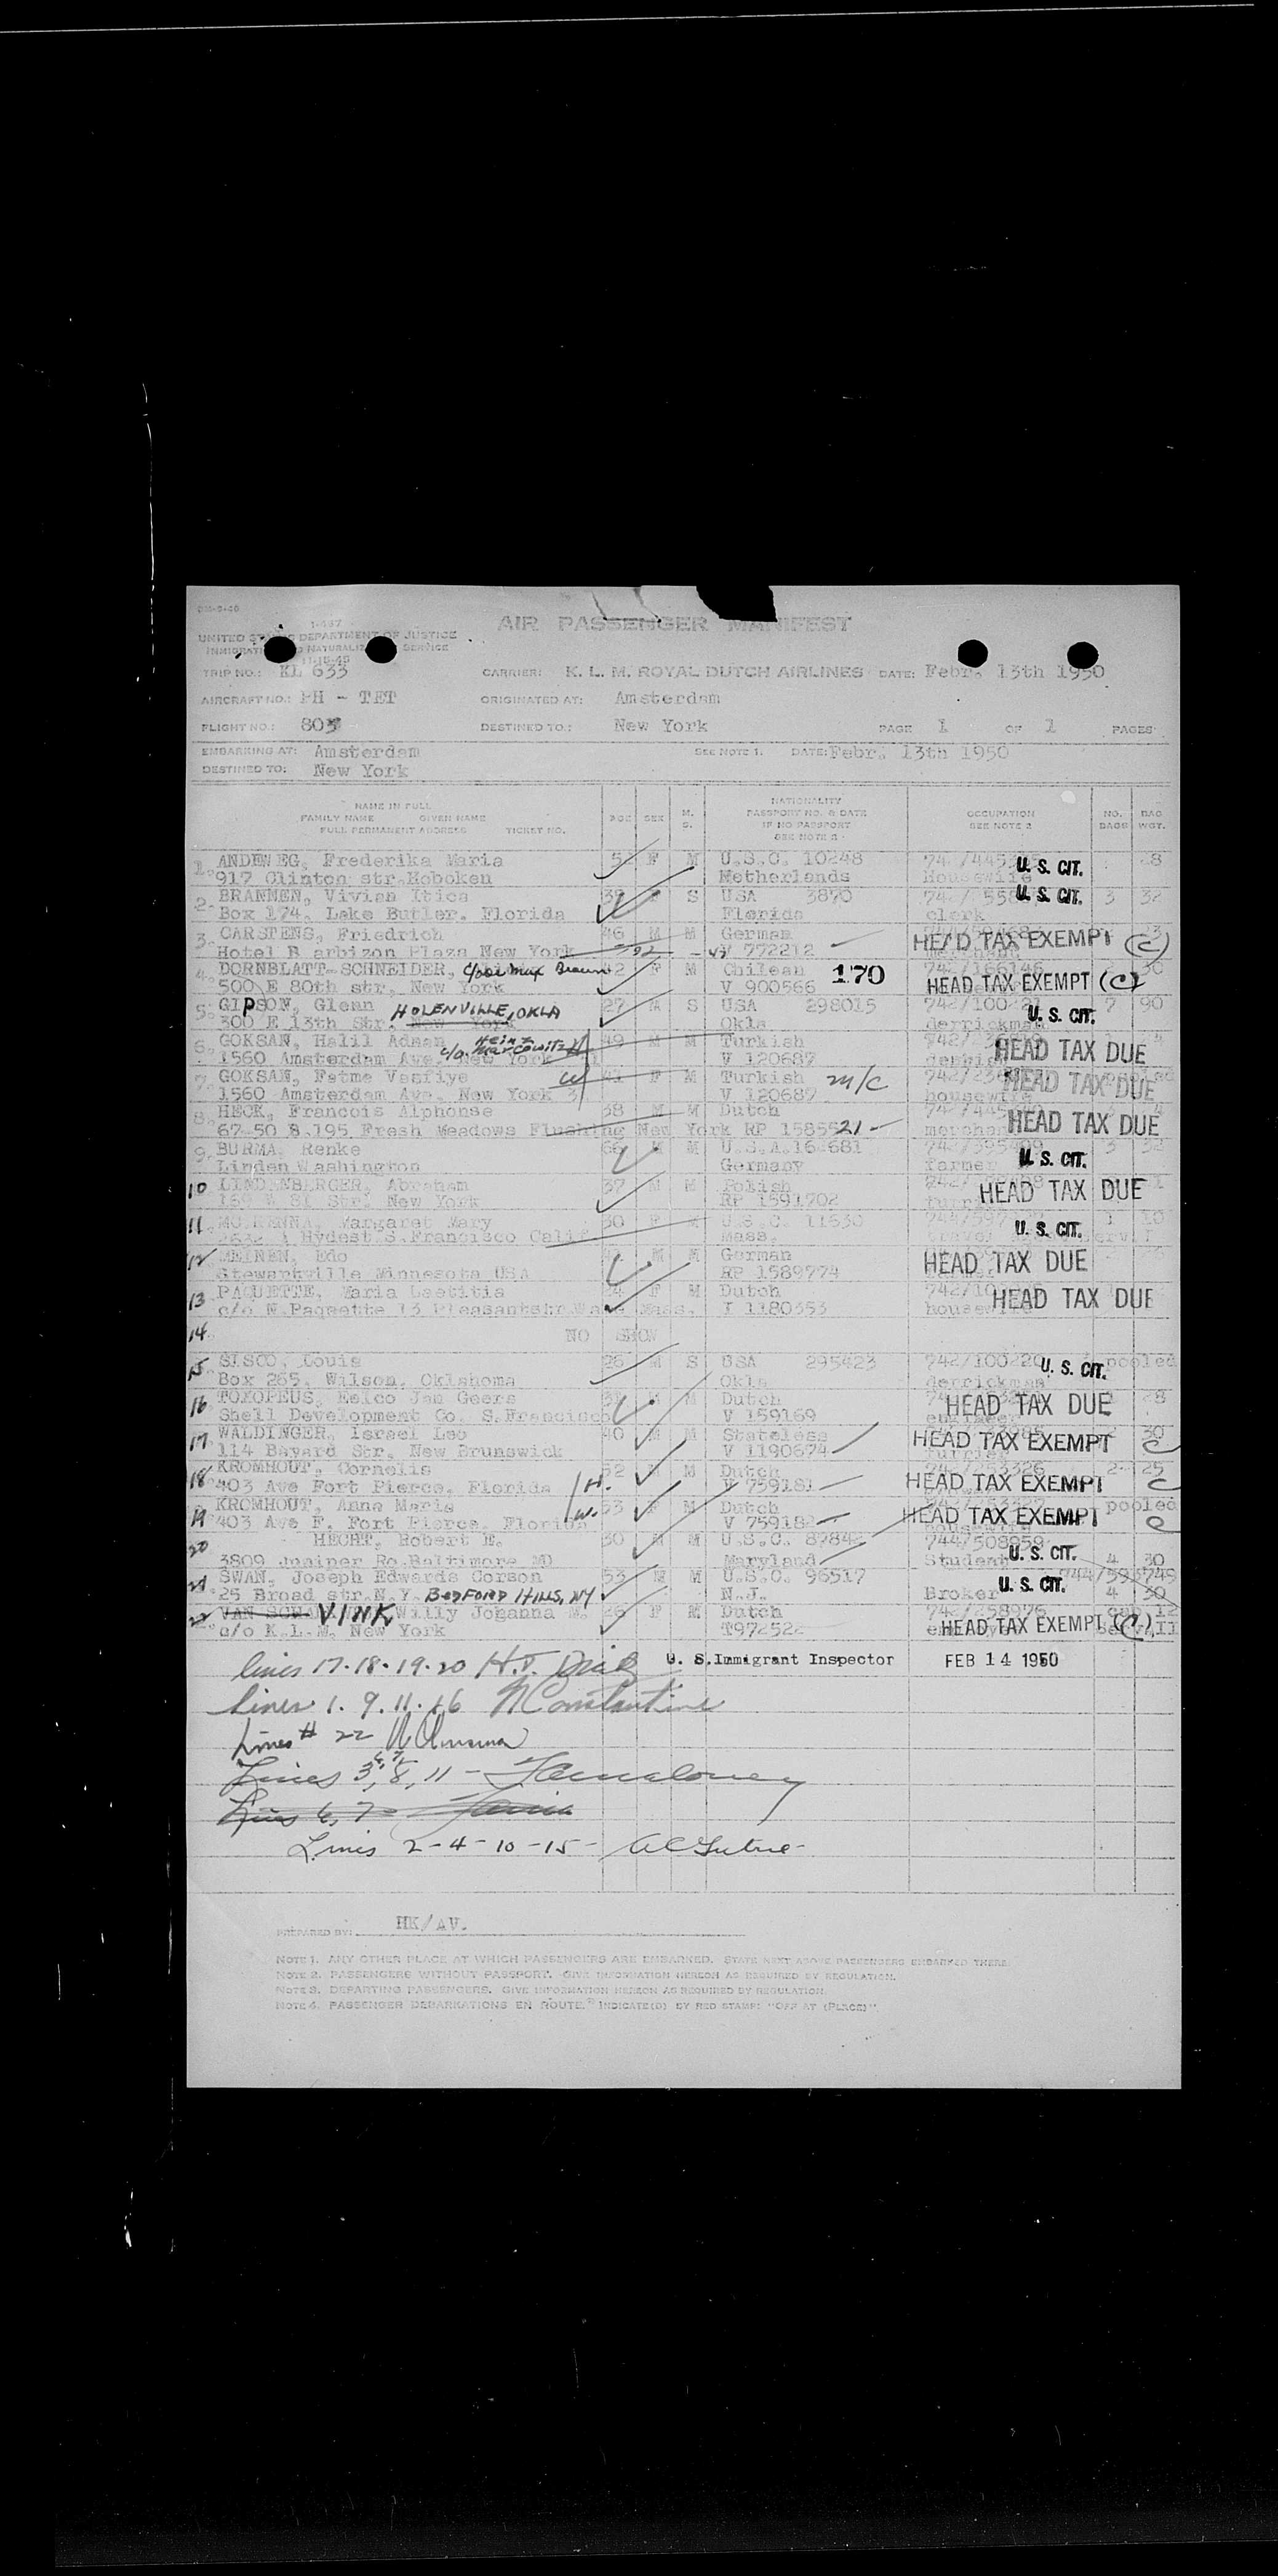 1-457
UNITED STATES DEPARTMENT OF JUSTICE
IMMIGRATION AND NATURALIZATION SERVICE
11-10-48
AIR PASSENGER MANIFEST
TRIP NO.: KL 633 CARRIER: K. L. M. ROYAL DUTCH AIRLINES DATE: Febr. 13th 1950
AIRCRAFT NO.: PH - TET ORIGINATED AT: Amsterdam
FLIGHT NO.: 803 DESTINED TO: New York PAGE 1 OF 1 PAGES
EMBARKING AT: Amsterdam SEE NOTE 1. DATE: Febr. 13th 1950
DESTINED TO: New York
NAME IN FULL
FAMILY NAME GIVEN NAME
FULL PERMANENT ADDRESS TICKET NO.
AGE SEX M. S.
NATIONALITY
PASSPORT NO. & DATE
IF NO PASSPORT
SEE NOTE 2
OCCUPATION
SEE NOTE 2
NO. BAGS
BAG WGT.
1. ANDEWEG, Frederika Maria F M U.S.C. 10248 U. S. CIT.
917 Clinton str. Hoboken Netherlands Housewife
2. BRANNEN, Vivian Itica S USA 3870 U. S. CIT. 3 32
Box 174, Lake Butler. Florida Florida clerk
3. CARSTENS, Friedrich 46 M M German HEAD TAX EXEMPT (C)
Hotel Barbizon Plaza New York V 772212 merchant
4. DORNBLATT-SCHNEIDER, c/o Max Brown F M Chilean 170 30
500 E 80th str. New York V 900566 HEAD TAX EXEMPT (C)
5. GIPSON, Glenn HOLENVILLE, OKLA 27 M S USA 298015 7 90
300 E 13th Str. New York Okla derrickman U. S. CIT.
6. GOKSAN, Halil Adnan c/o Heinz Marcowitz H 49 M M Turkish
1560 Amsterdam Ave. New York V 120687 HEAD TAX DUE
7. GOKSAN, Fatme Vasfiye W 41 F M Turkish m/c HEAD TAX DUE
1560 Amsterdam Ave. New York V 120687 housewife
8. HECK, Francois Alphonse 38 M M Dutch
67-50 B.195 Fresh Meadows Flushing New York RP 1585521 merchant HEAD TAX DUE
9. BURMA, Renke 66 M M U.S.A. 16-681 3 32
Linden Washington Germany farmer U. S. CIT.
10 LINDENBERGER, Abraham 37 M M Polish HEAD TAX DUE
169 W 81 Str. New York RP 1591702
11. Margaret Mary 30 F U.S.C. 11630 1 10
S.Francisco Calif Mass. U. S. CIT.
12 MEINEN, Edo M M German HEAD TAX DUE
Stewartville Minnesota USA RP 1589774
13 PAQUETTE, Maria Laetitia F M Dutch HEAD TAX DUE
c/o N.Paquette 13 Pleasantstr. Mass. I 1180353 housewife
14. NO SHOW
15. SISCO, Louis 26 M S USA 295423 742/100220 pooled
Box 265, Wilson, Oklahoma Okla derrickman U. S. CIT.
16 TOXOPEUS, Eelco Jan Geers M M Dutch HEAD TAX DUE 28
Shell Development Co. S.Francisco V 159169 engineer
17. WALDINGER, Israel Leo 40 M M Stateless HEAD TAX EXEMPT C 30
114 Bayard Str. New Brunswick V 1190674 furrier
18 KROMHOUT, Cornelis 52 M M Dutch 2 25
403 Ave Fort Pierce, Florida H. V 759181 HEAD TAX EXEMPT C
19 KROMHOUT, Anna Maria W. 53 F M Dutch pooled
403 Ave F. Fort Pierce, Florida V 759182 HEAD TAX EXEMPT C
20 HECHT, Robert E. 30 M M U.S.C. 87842 744/508959
3809 Juniper Ro.Baltimore MD Maryland Student U. S. CIT. 4 30
21 SWAN, Joseph Edwards Corson 53 M M U.S.C. 96517 U. S. CIT. 744/593749
25 Broad str.N.Y. BEDFORD HILLS, NY N.J. Broker 4 30
22 VINK Willy Johanna M. 26 F M Dutch 742/258976
c/o K.L.M. New York T97252 HEAD TAX EXEMPT (C)
lines 17-18-19-20 U. S. Immigrant Inspector FEB 14 1950
Lines 1. 9. 11. 16 Constantine
Lines # 22
Lines 3, 6, 7, 8, 11 -
Lines 6, 7
Lines 2-4-10-15-
PREPARED BY: HK/AV.
NOTE 1. ANY OTHER PLACE AT WHICH PASSENGERS ARE EMBARKED. STATE NEXT ABOVE PASSENGERS EMBARKED THERE.
NOTE 2. PASSENGERS WITHOUT PASSPORT. GIVE INFORMATION HEREON AS REQUIRED BY REGULATION.
NOTE 3. DEPARTING PASSENGERS. GIVE INFORMATION HEREON AS REQUIRED BY REGULATION.
NOTE 4. PASSENGER DEBARKATIONS EN ROUTE. INDICATE(D) BY RED STAMP: "OFF AT (PLACE)".